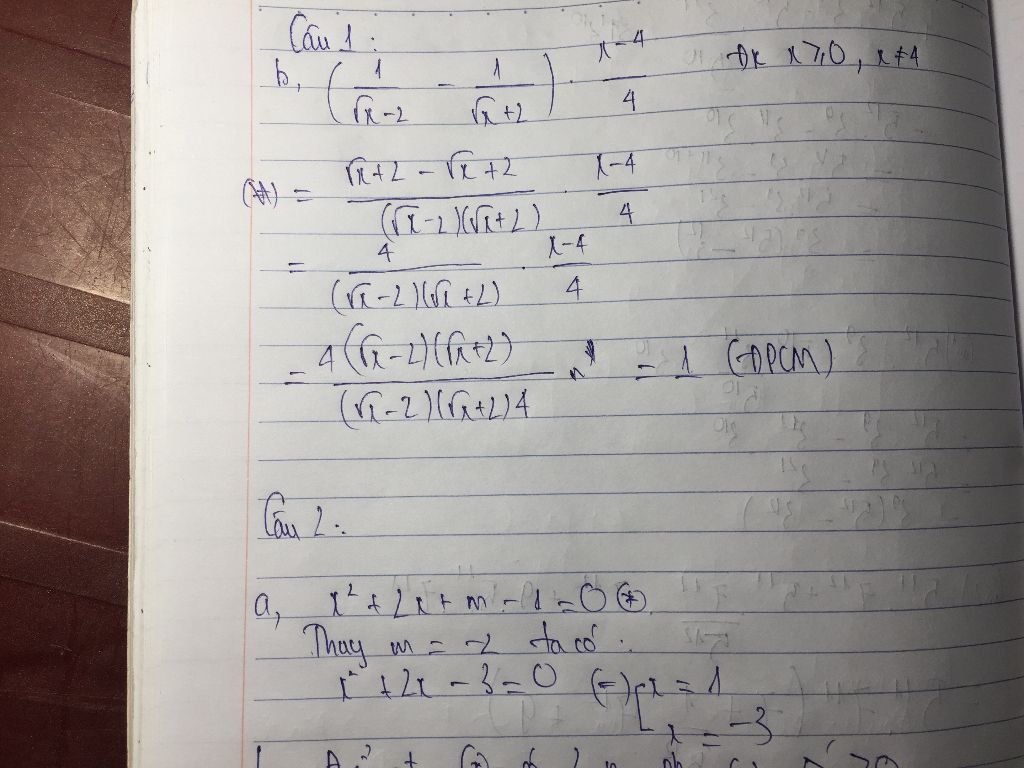 Câu 1:
b, (1/(√x-2) - 1/(√x+2)) . (x-4)/4 ĐK x ≥ 0, x ≠ 4
= (√x+2 - √x+2)/((√x-2)(√x+2)) . (x-4)/4
= 4/((√x-2)(√x+2)) . (x-4)/4
= 4(√x-2)(√x+2)/((√x-2)(√x+2)4) = 1 (ĐPCM)
Câu 2:
a, x² + 2x + m - 1 = 0 (*)
Thay m = -2 ta có:
x² + 2x - 3 = 0 (=) [x = 1
x = -3